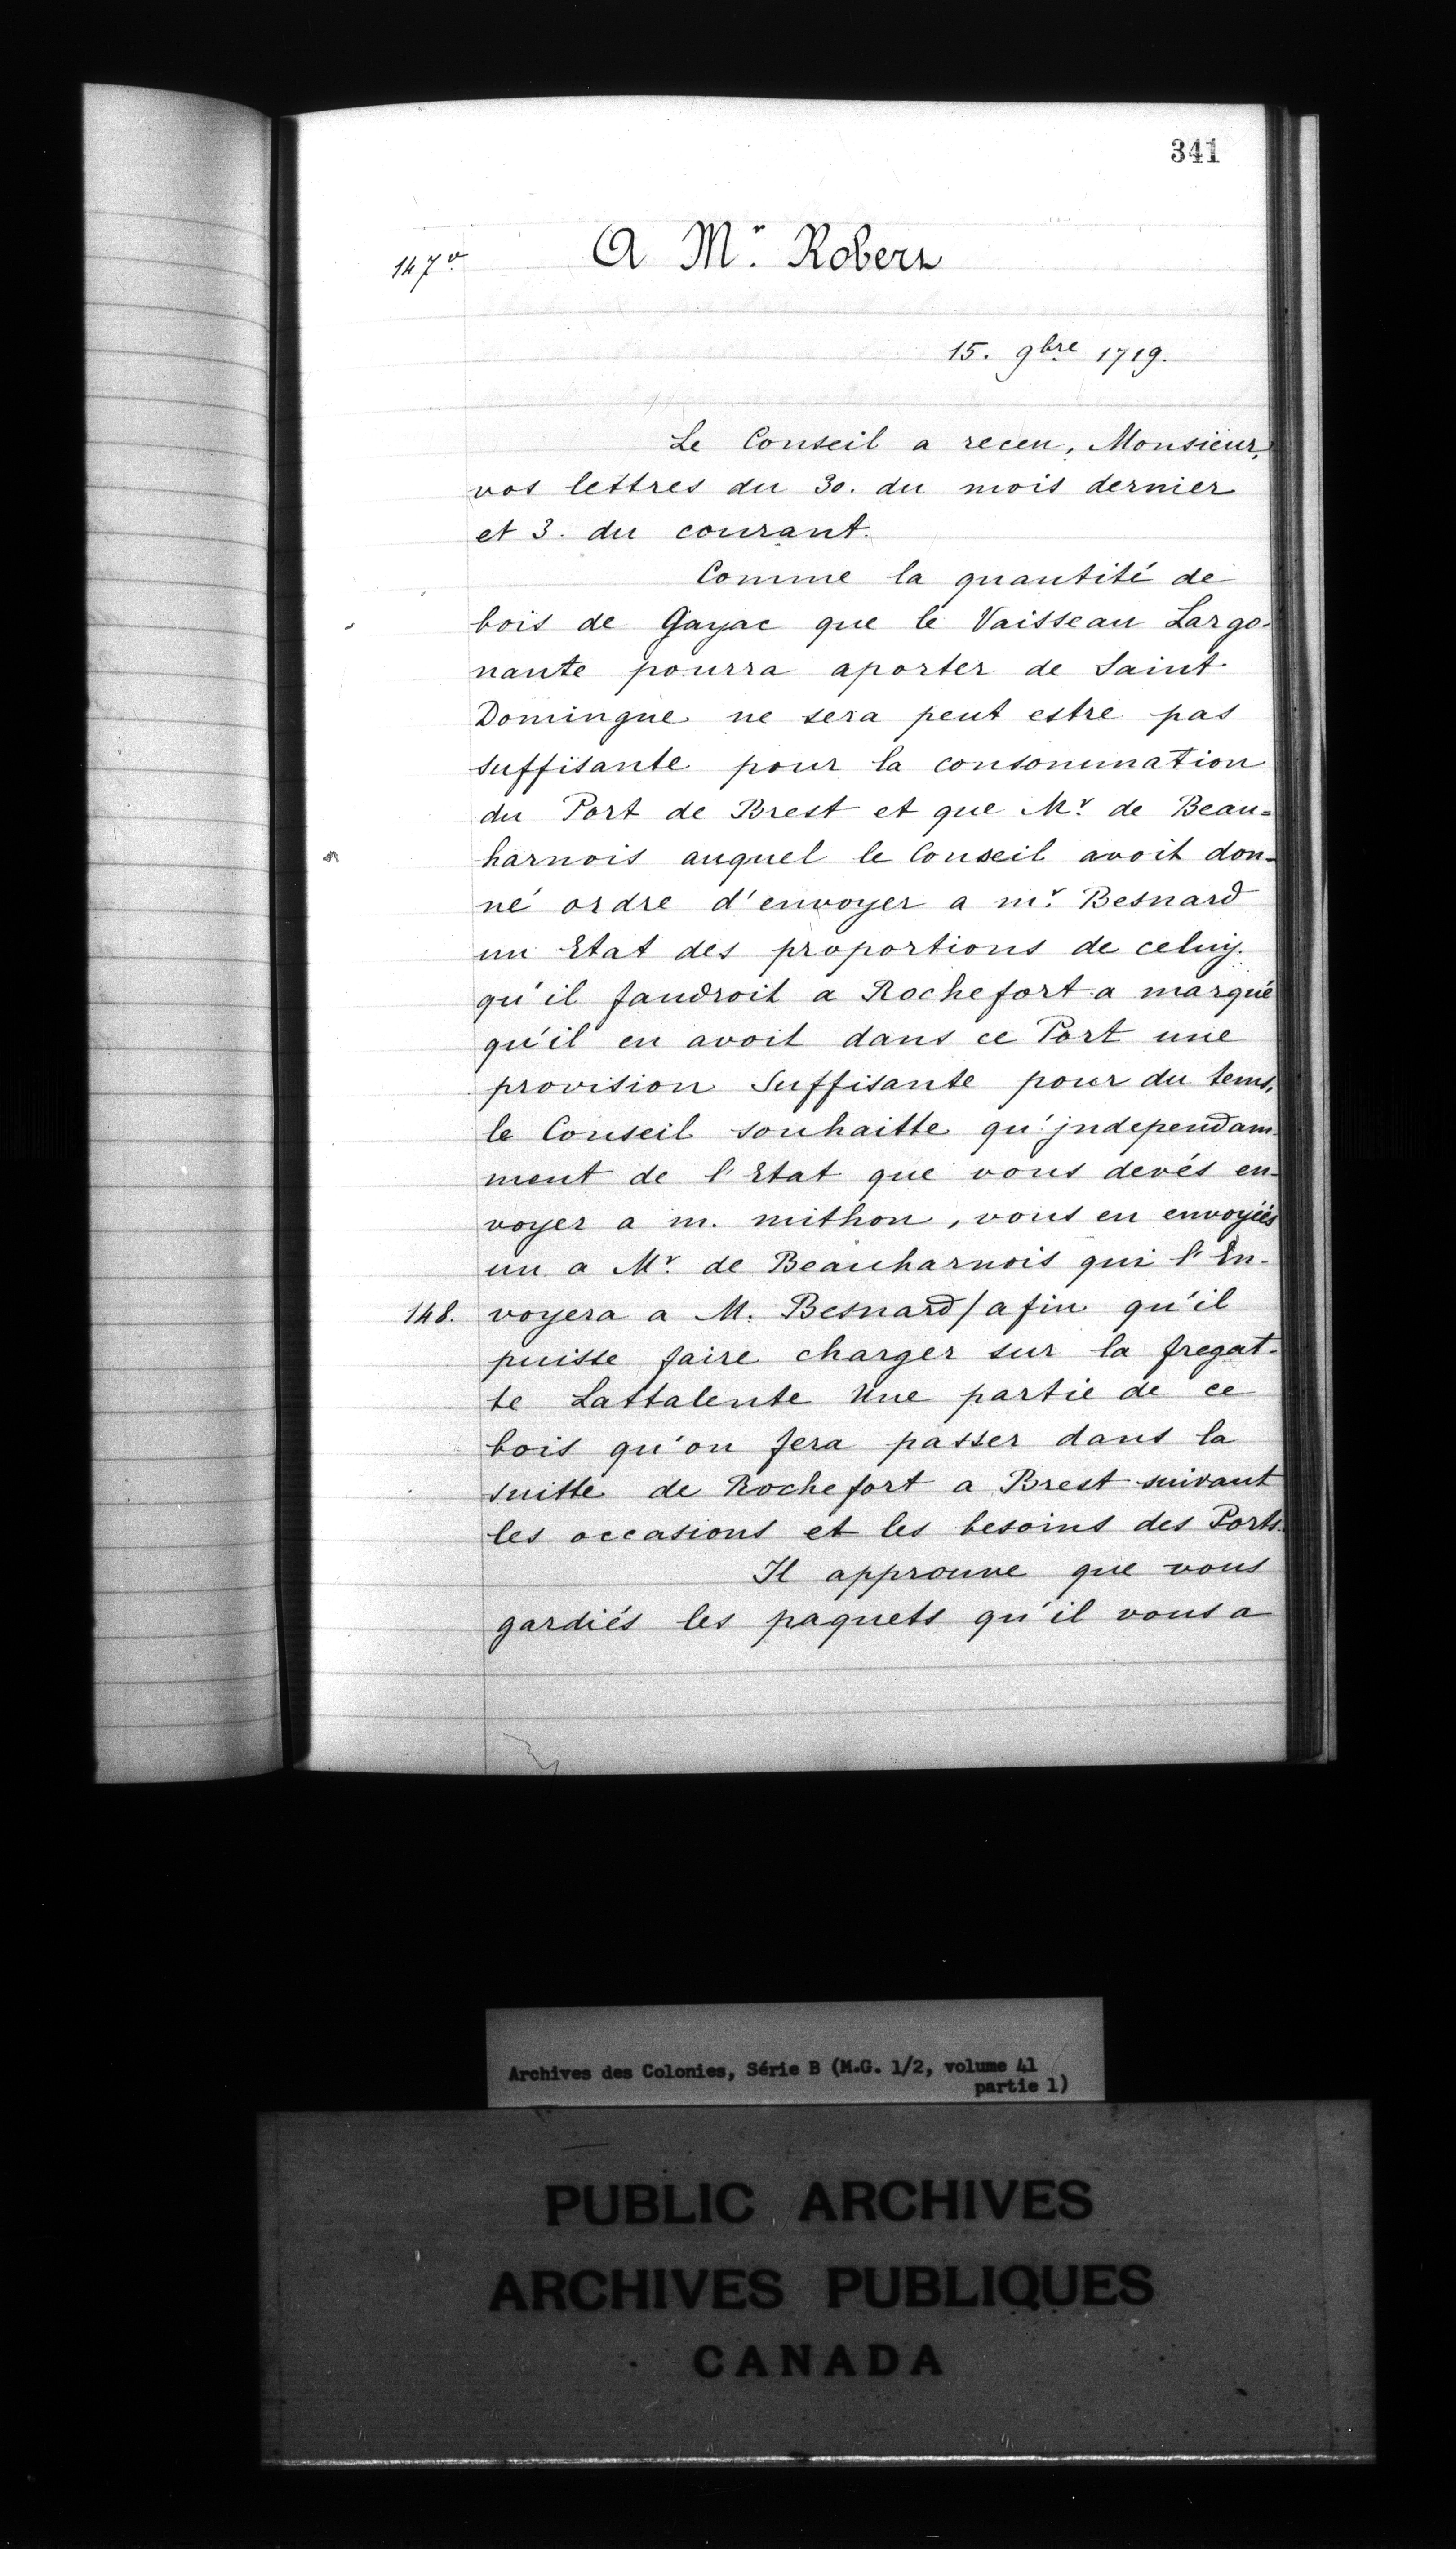 341
147v.
A Mr. Robert
15. 9bre 1719.
Le Conseil a receu, Monsieur,
vos lettres du 30. du mois dernier
et 3. du courant.
Comme la quantité de
bois de Gayac que le Vaisseau Largo-
nante pourra aporter de Saint
Domingue ne sera peut estre pas
suffisante pour la consommation
du Port de Brest et que Mr. de Beau=
harnois auquel le Conseil avoit don-
né ordre d'envoyer a mr. Besnard
un Etat des proportions de celuy
qu'il faudroit a Rochefort a marqué
qu'il en avoit dans ce Port une
provision suffisante pour du tems,
le Conseil souhaitte qu'jndependam-
ment de l'Etat que vous devés en-
voyer a m. mithon, vous en envoyiés
un a Mr. de Beauharnois qui l'En-
148. voyera a M. Besnard/ afin qu'il
puisse faire charger sur la fregat-
te Lattalente Une partie de ce
bois qu'on fera passer dans la
suitte de Rochefort a Brest suivant
les occasions et les besoins des Ports.
Il approuve que vous
gardiés les paquets qu'il vous a
Archives des Colonies, Série B (M.G. 1/2, volume 41
partie 1)
PUBLIC ARCHIVES
ARCHIVES PUBLIQUES
CANADA